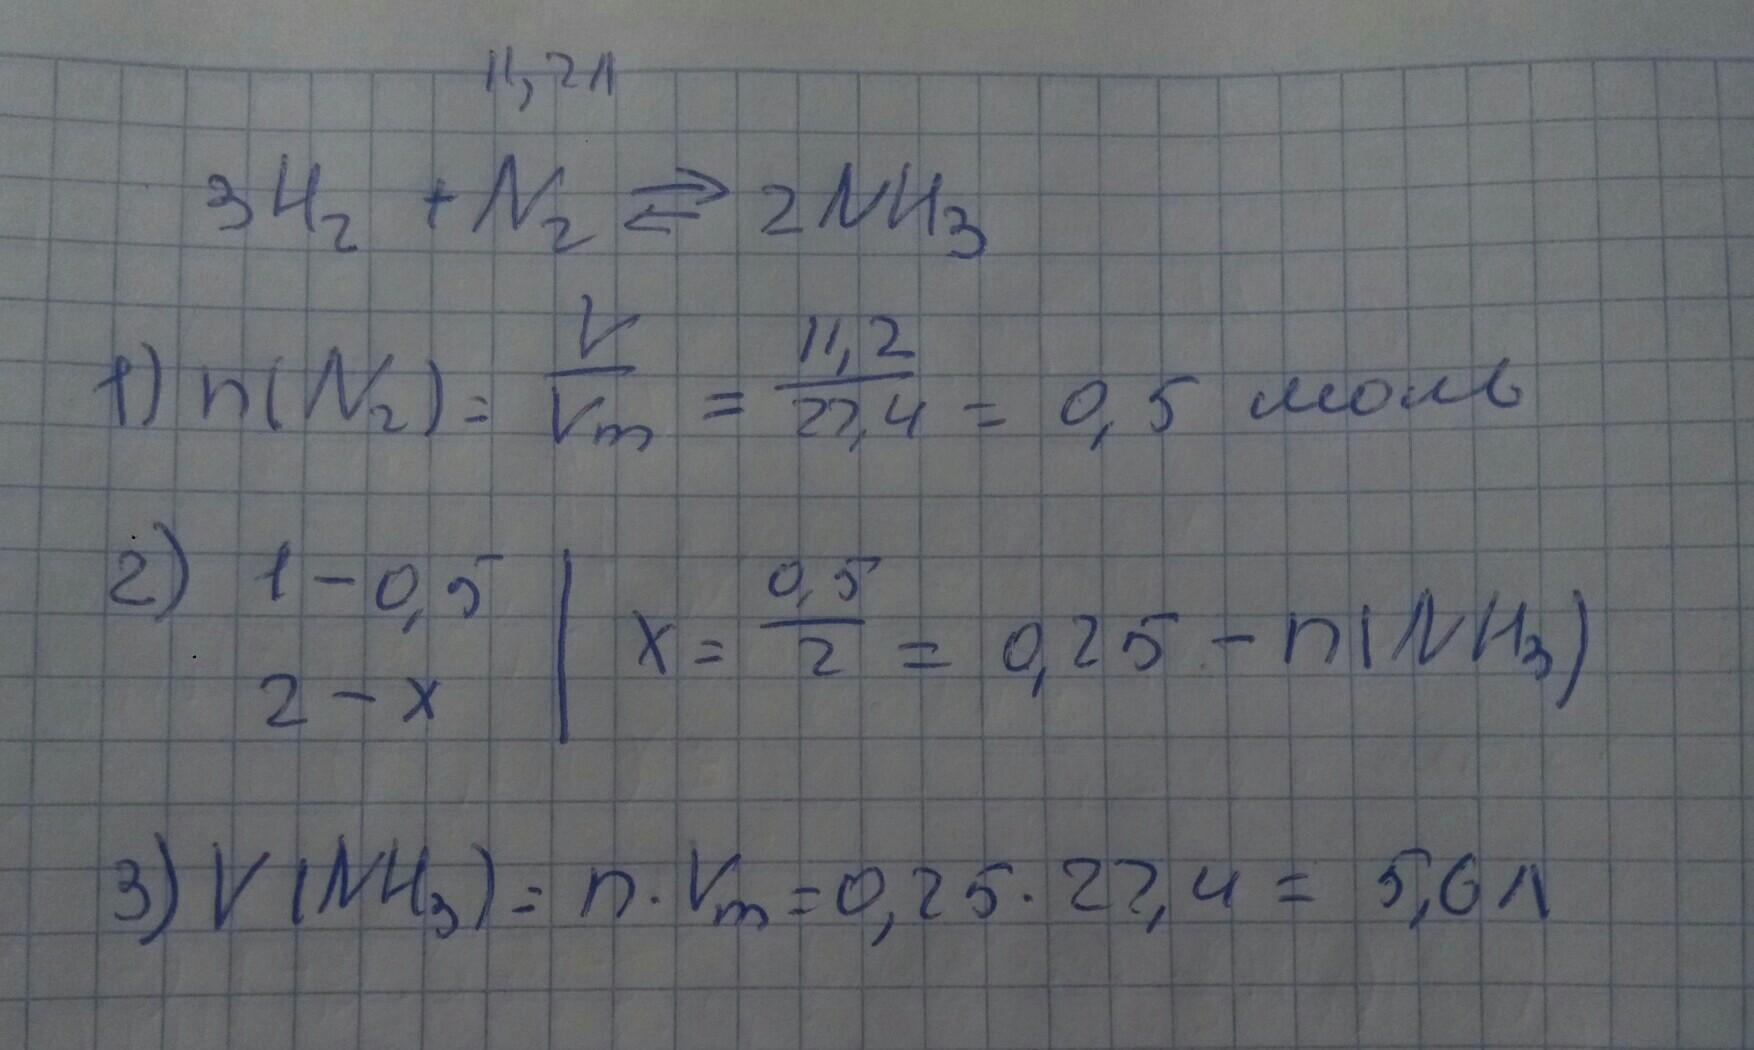 11,2л
3H₂ + N₂ ⇄ 2NH₃
1) n(N₂) = V/Vm = 11,2/22,4 = 0,5 моль
2) 1 – 0,5 | x = 0,5/2 = 0,25 – n(NH₃)
2 – x
3) V(NH₃) = n · Vm = 0,25 · 22,4 = 5,6 л